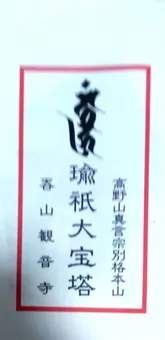 高野山真言宗別格本山
瑜祇大宝塔
呑山観音寺